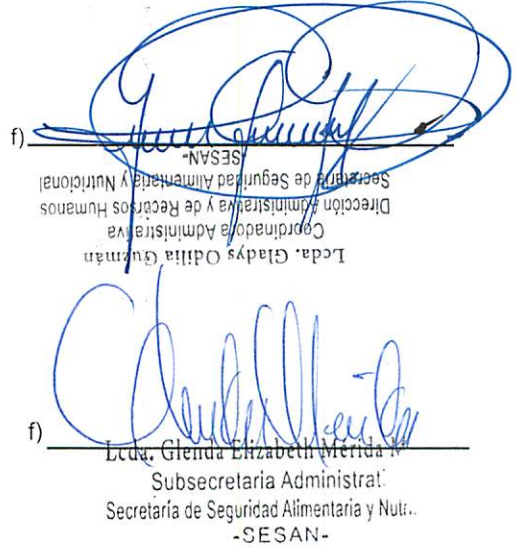 f)
-SESAN-
Secretaría de Seguridad Alimentaria y Nutricional
Dirección Administrativa y de Recursos Humanos
Coordinadora Administrativa
Lcda. Gladys Odilia Guzmán
f)
Lcda. Glenda Elizabeth Mérida M
Subsecretaria Administrat.
Secretaría de Seguridad Alimentaria y Nutr..
-SESAN-